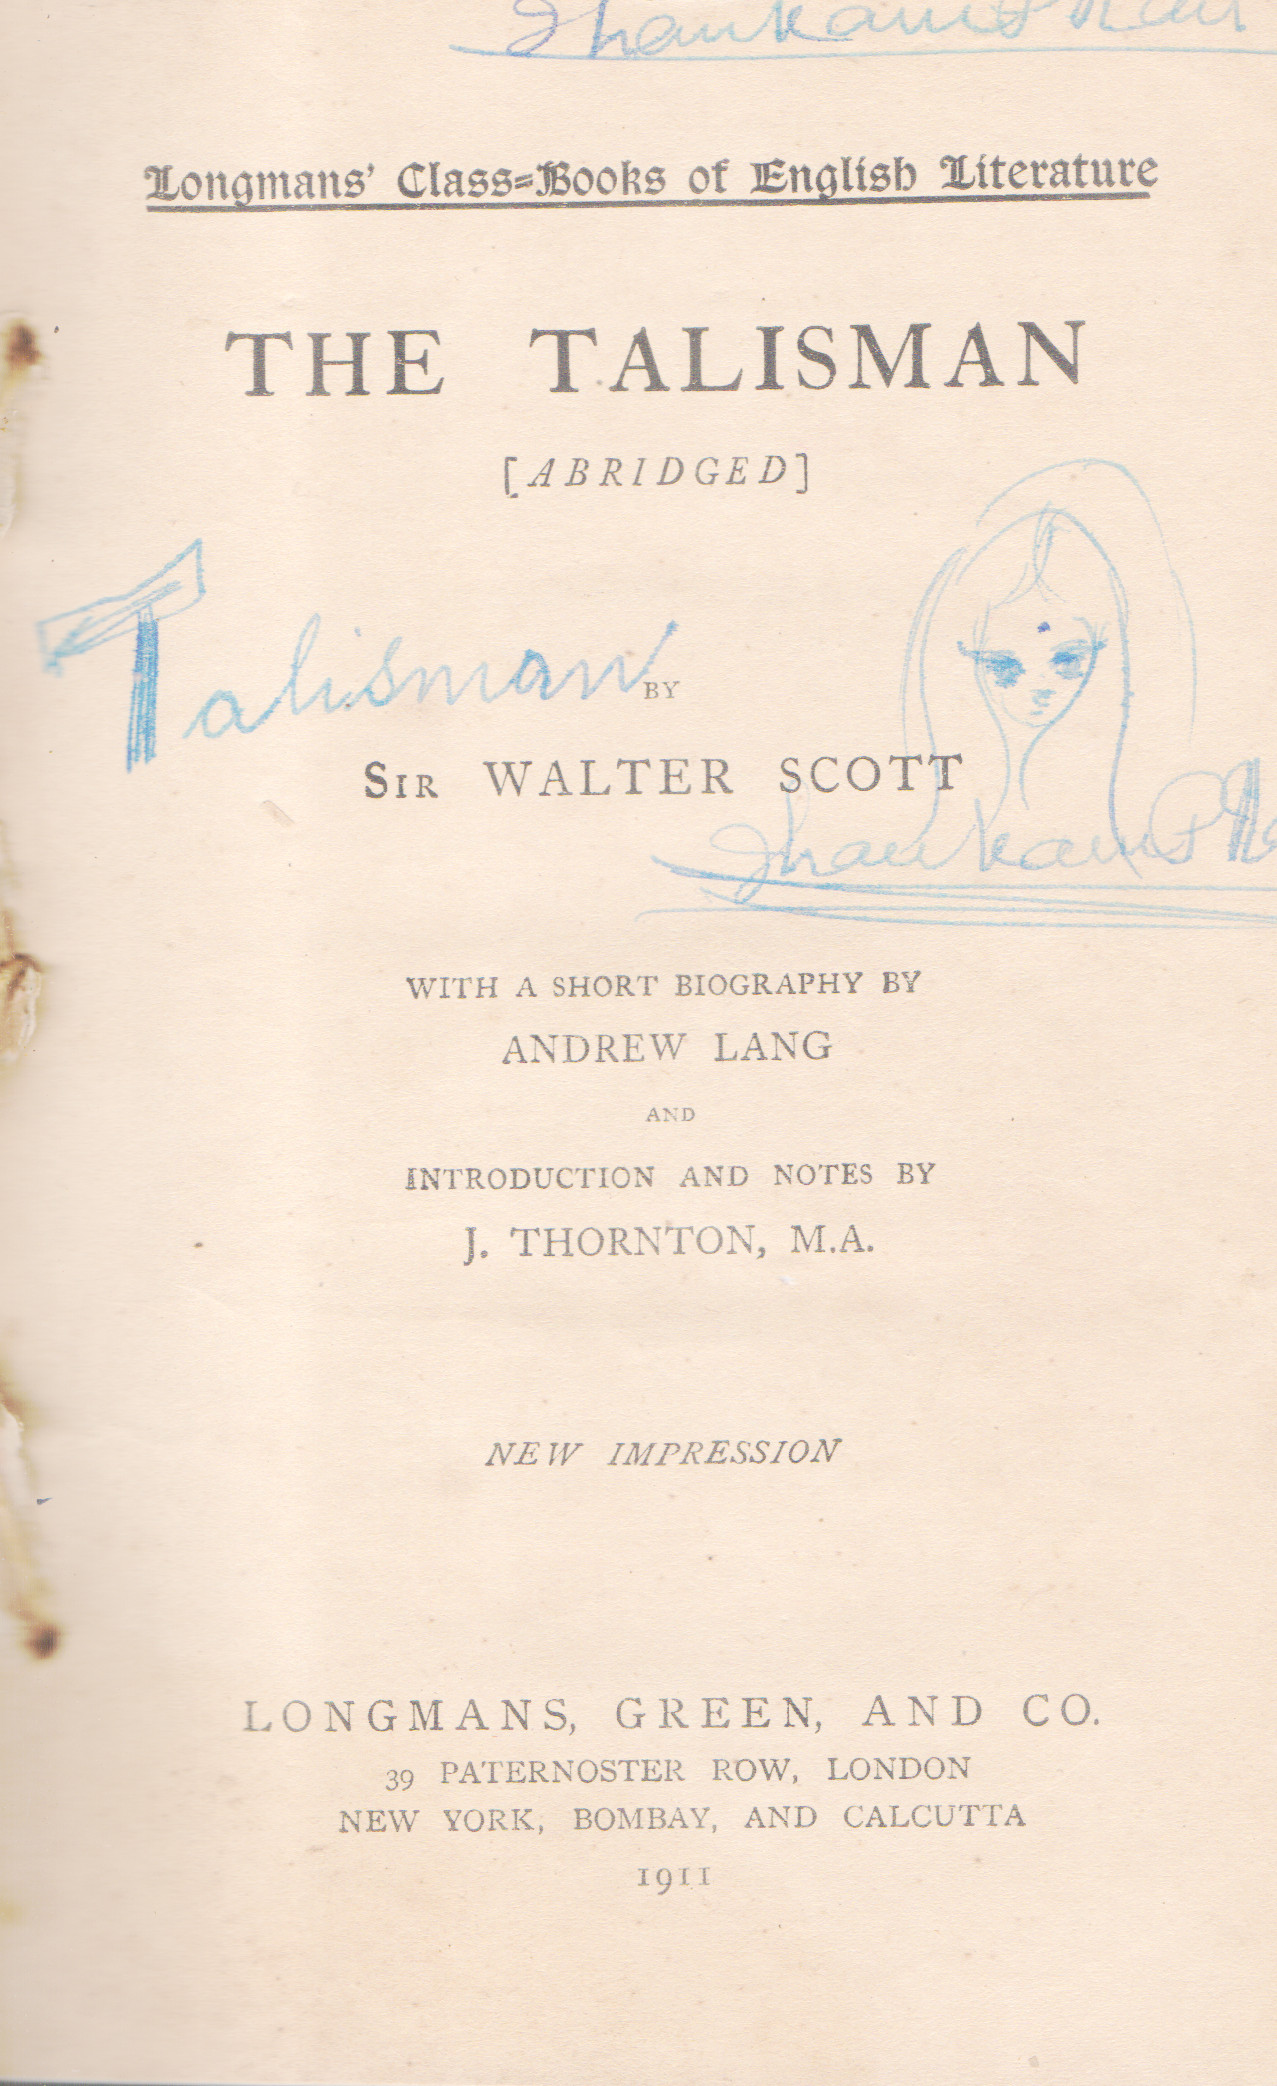 Longmans' Class=Books of English Literature
THE TALISMAN
[ABRIDGED]
Talisman
BY
SIR WALTER SCOTT
WITH A SHORT BIOGRAPHY BY
ANDREW LANG
AND
INTRODUCTION AND NOTES BY
J. THORNTON, M.A.
NEW IMPRESSION
LONGMANS, GREEN, AND CO.
39 PATERNOSTER ROW, LONDON
NEW YORK, BOMBAY, AND CALCUTTA
1911